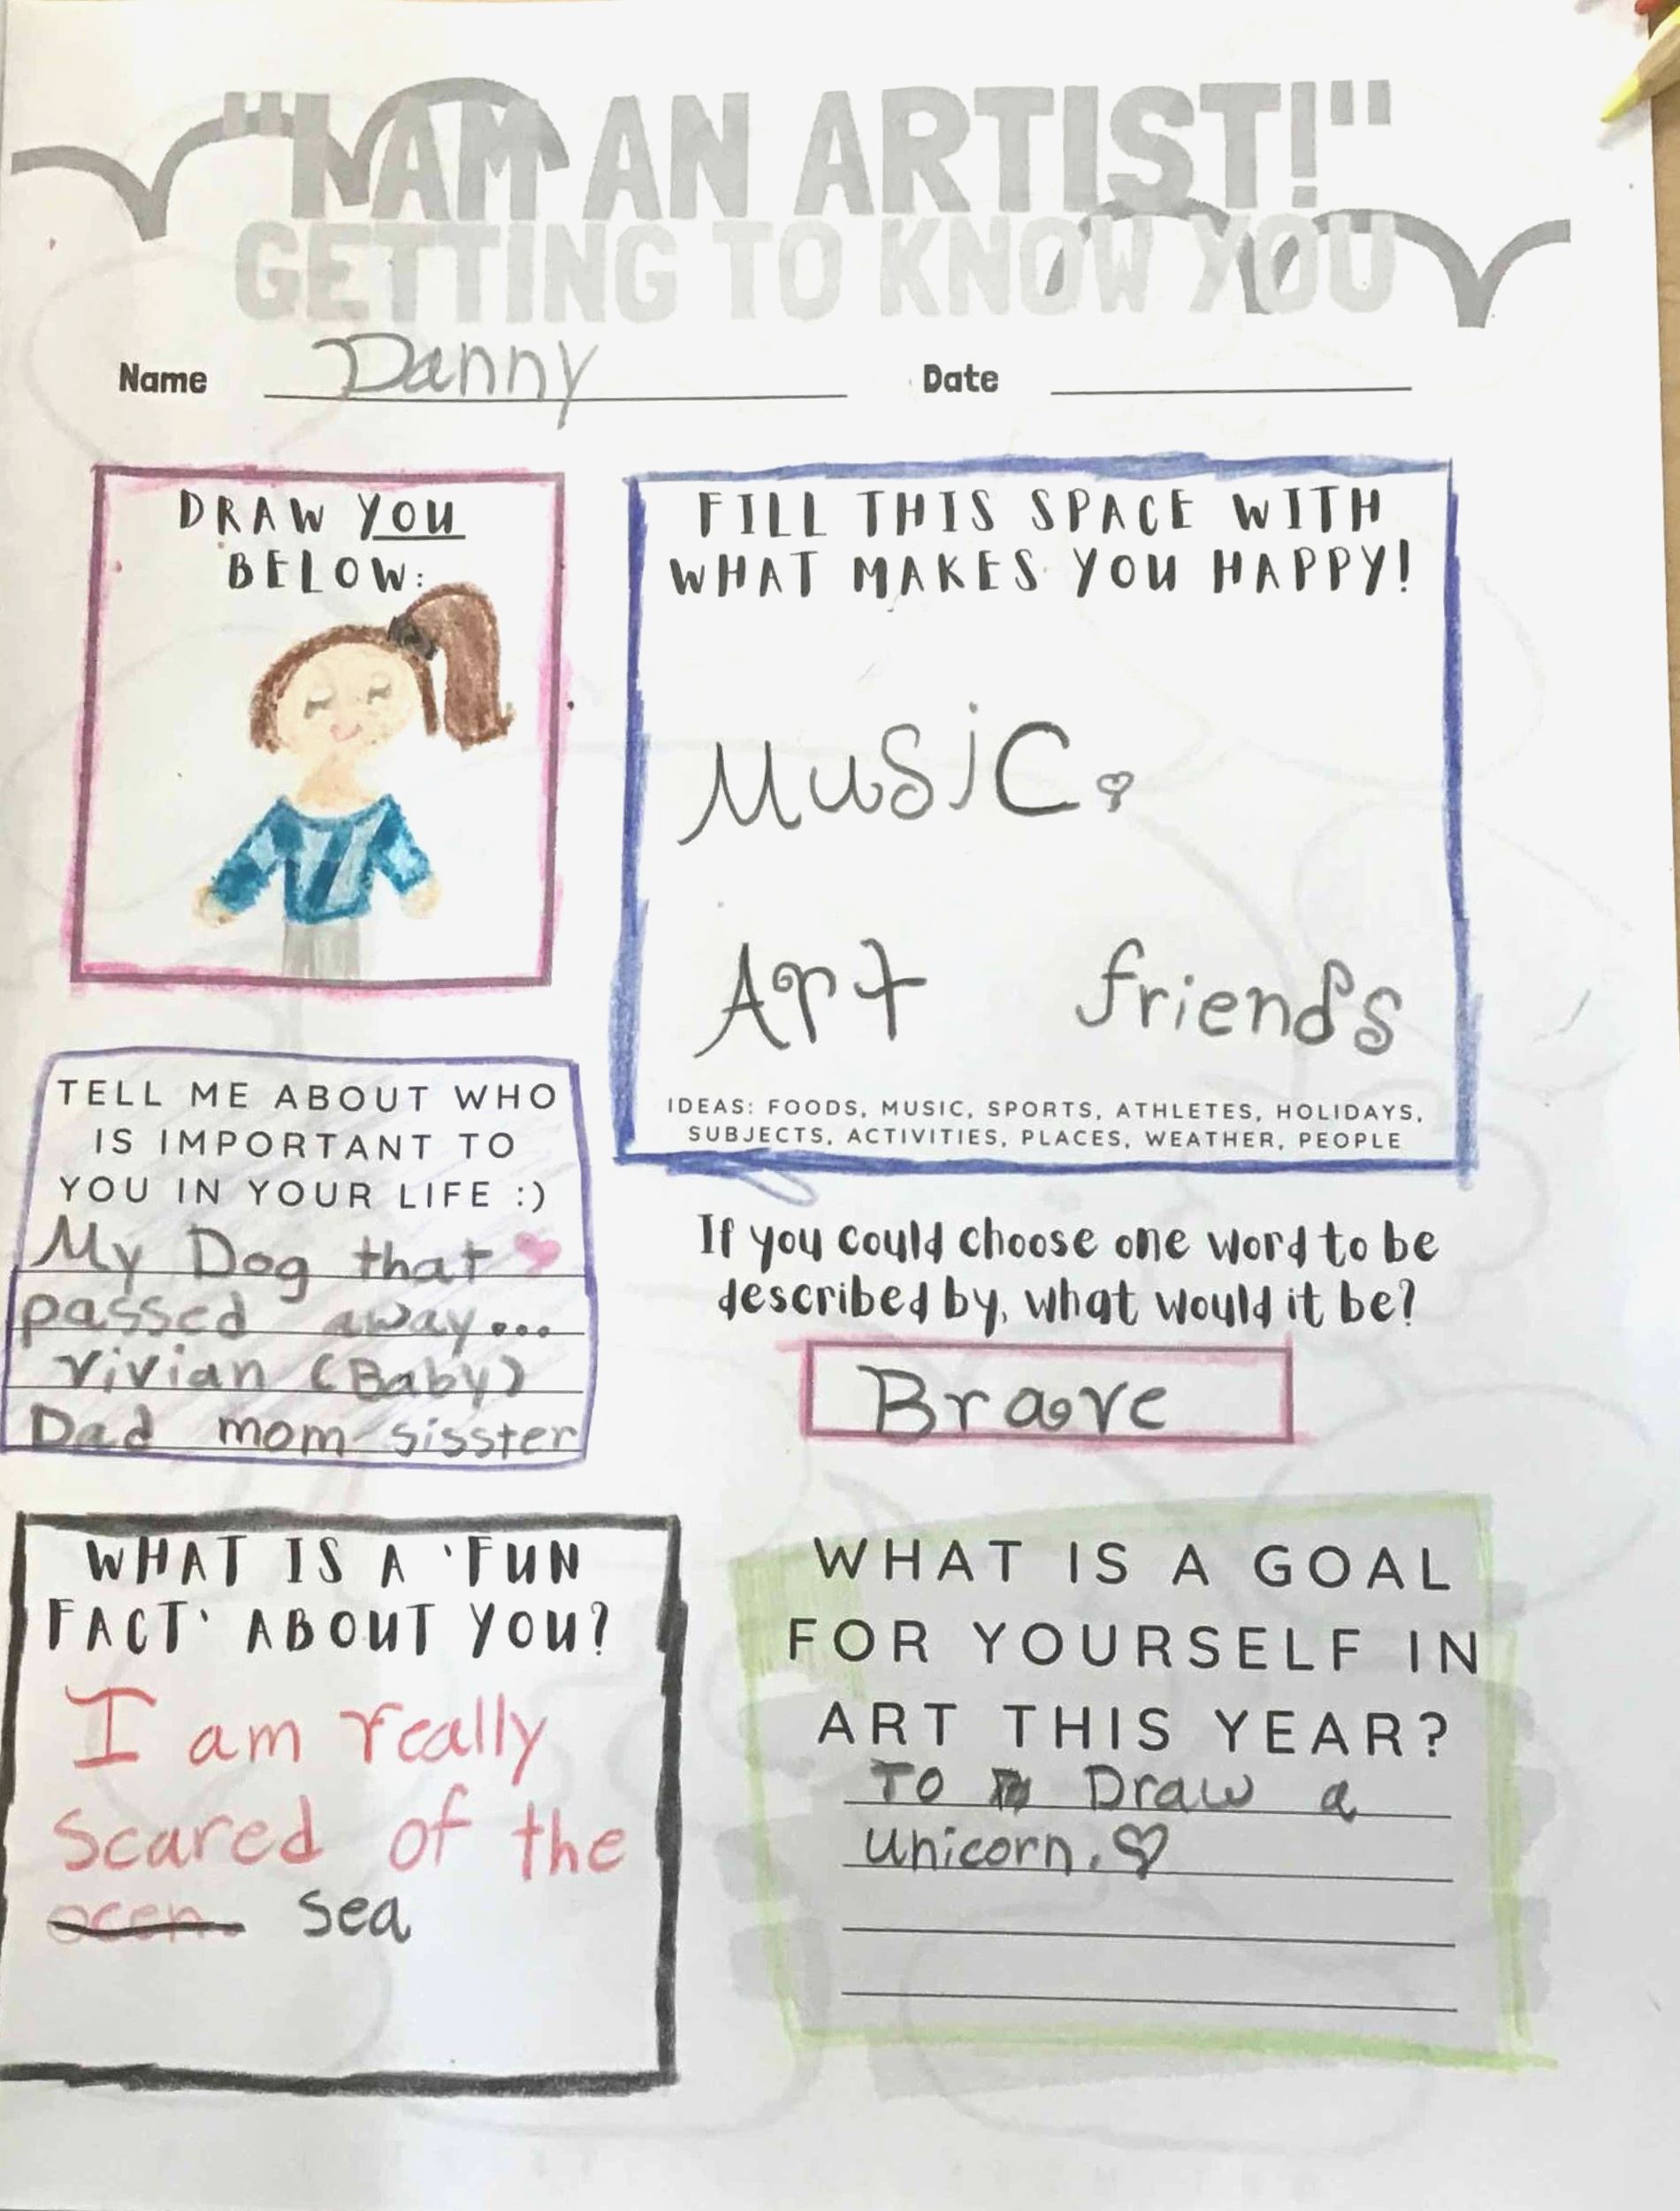 "I AM AN ARTIST!"
GETTING TO KNOW YOU
Name Danny Date
DRAW YOU
BELOW:
FILL THIS SPACE WITH
WHAT MAKES YOU HAPPY!
Music.
Art friends
IDEAS: FOODS, MUSIC, SPORTS, ATHLETES, HOLIDAYS,
SUBJECTS, ACTIVITIES, PLACES, WEATHER, PEOPLE
TELL ME ABOUT WHO
IS IMPORTANT TO
YOU IN YOUR LIFE :)
My Dog that
passed away...
Vivian (Baby)
Dad mom sisster
If you could choose one word to be
described by, what would it be?
Brave
WHAT IS A 'FUN
FACT' ABOUT YOU?
I am really
scared of the
ocen sea
WHAT IS A GOAL
FOR YOURSELF IN
ART THIS YEAR?
To Draw a
unicorn.